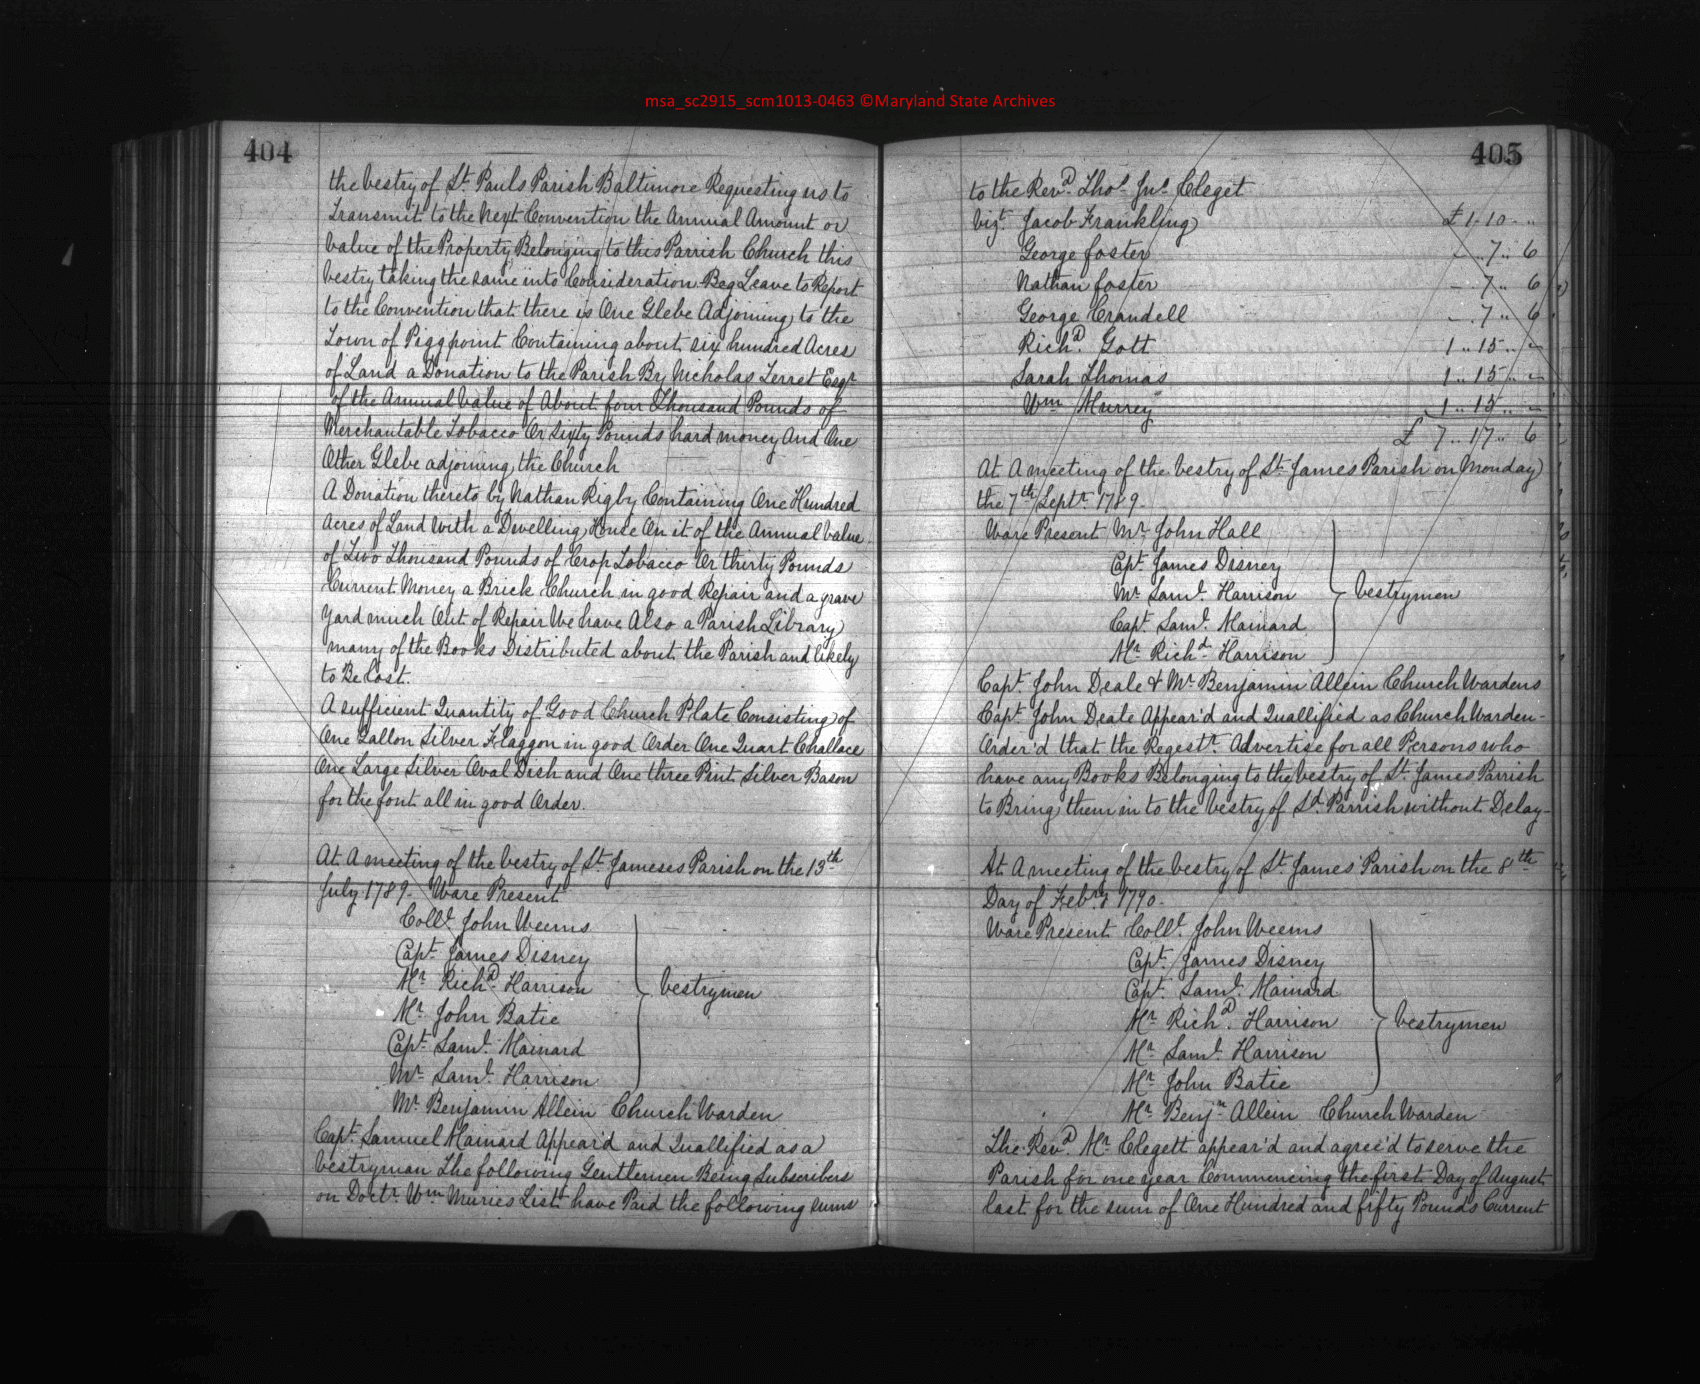 msa_sc2915_scm1013-0463 ©Maryland State Archives
404
the Vestry of St. Pauls Parish Baltimore Requesting us to
Transmit to the Next Convention the Annual Amount or
Value of the Property Belonging to this Parrish Church this
Vestry taking the same into Consideration Beg Leave to Report
to the Convention that there is One Glebe Adjoining to the
Town of Piggpoint Containing about six hundred Acres
of Land a Donation to the Parish By Nicholas Terret Esqr.
of the Annual Value of About four Thousand Pounds of
Merchantable Tobacco Or Sixty Pounds hard money And One
Other Glebe adjoining the Church
A Donation thereto by Nathan Rigby Containing One Hundred
Acres of Land With a Dwelling House On it of the Annual Value
of Two Thousand Pounds of Crop Tobacco Or thirty Pounds
Current Money a Brick Church in good Repair and a grave
Yard much Out of Repair We have Also a Parish Library
many of the Books Distributed about the Parish and likely
to Be Lost.
A sufficient Quantity of Good Church Plate Consisting of
One Gallon Silver Flaggon in good Order One Quart Challace
One Large Silver Oval Dish and One three Pint Silver Bason
for the font all in good Order.
At A meeting of the Vestry of St. Jameses Parish on the 13th
July 1789 Ware Present
Coll. John Weems
Capt. James Disney
Mr. Richd. Harrison
Vestrymen
Mr. John Batie
Capt. Saml. Mainard
Mr. Saml. Harrison
Mr. Benjamin Allein Church Warden
Capt. Samuel Mainard Appear'd and Quallified as a
Vestryman The following Gentlemen Being Subscribers
on Doctr. Wm. Muries List have Paid the following sums
405
to the Revd. Thos. Jns. Cleget
Vizt. Jacob Frankling £1.10. ..
George foster - .. 7 .. 6
Nathan foster - .. 7 .. 6
George Crandell - .. 7 .. 6
Richd. Gott 1 .. 15 .. -
Sarah Thomas 1 .. 15 .. -
Wm Murrey 1 .. 15 .. -
£ 7 .. 17 .. 6
At A meeting of the Vestry of St. James Parish on Monday
the 7th Septr. 1789.
Ware Present Mr. John Hall
Capt. James Disney
Mr. Saml. Harrison
Vestrymen
Capt. Saml. Mainard
Mr. Richd. Harrison
Capt. John Deale & Mr. Benjamin Allein Church Wardens
Capt. John Deale Appear'd and Quallified as Church Warden -
Order'd that the Regestr. Advertise for all Persons who
have any Books Belonging to the Vestry of St. James Parrish
to Bring them in to the Vestry of Sd. Parrish without Delay -
At A meeting of the Vestry of St. James Parish on the 8th
Day of Febry. 1790.
Ware Present Coll. John Weems
Capt. James Disney
Capt. Saml. Mainard
Mr. Richd. Harrison
Vestrymen
Mr. Saml. Harrison
Mr. John Batie
Mr. Benjn. Allein Church Warden
The Revd. Mr. Clegett appear'd and agree'd to serve the
Parish for one year Commencing the first Day of August
last for the sum of One Hundred and fifty Pounds Current